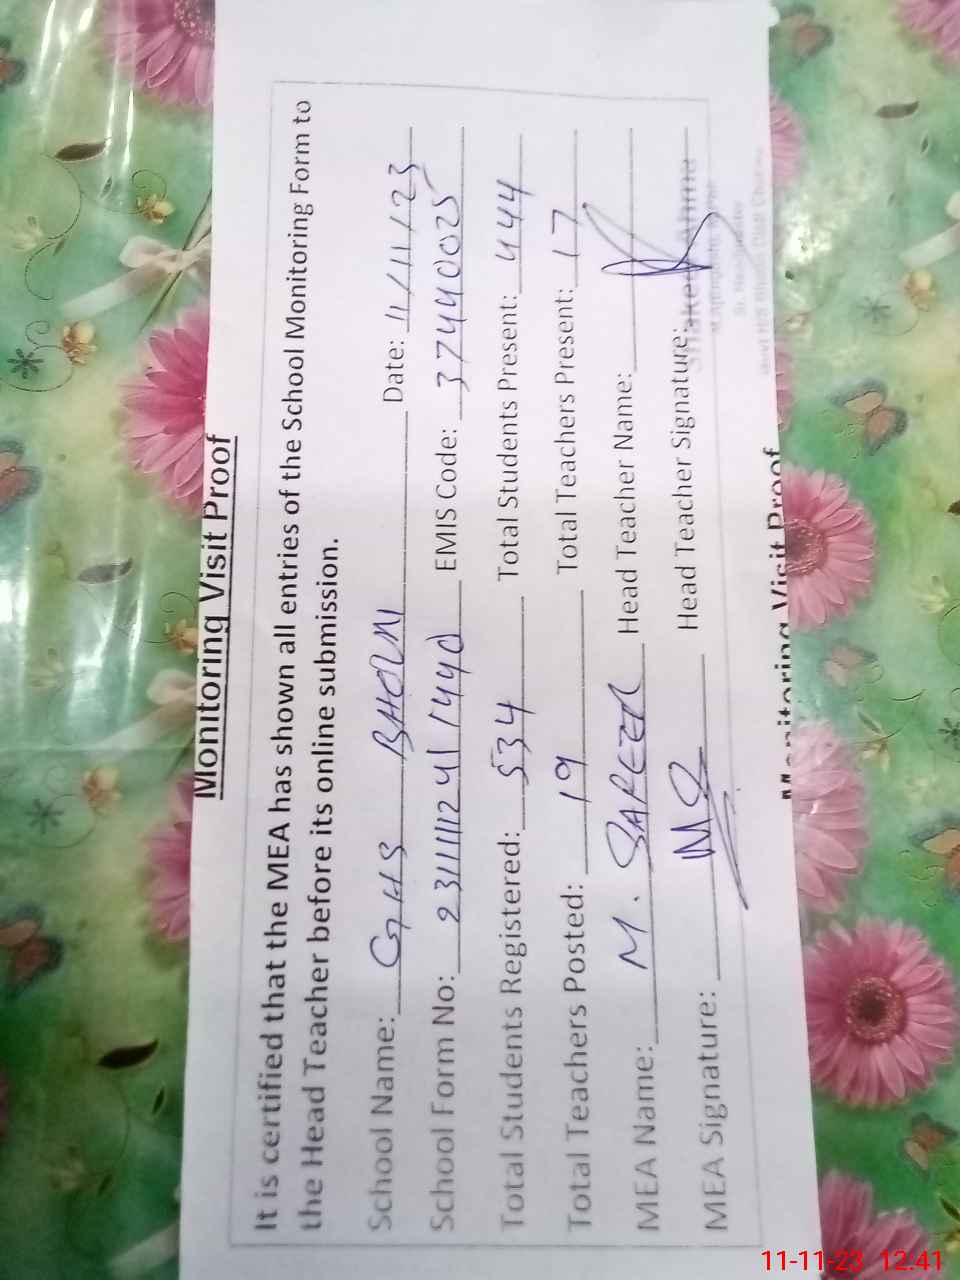 Monitoring Visit Proof
It is certified that the MEA has shown all entries of the School Monitoring Form to
the Head Teacher before its online submission.
School Name: GHS BHOUN Date: 11/11/23
School Form No: 2311112411440 EMIS Code: 37440025
Total Students Registered: 534 Total Students Present: 444
Total Teachers Posted: 19 Total Teachers Present: 17
MEA Name: M. SAFEER Head Teacher Name:
MEA Signature: Head Teacher Signature:
Monitoring Visit Proof
11-11-23 12:41